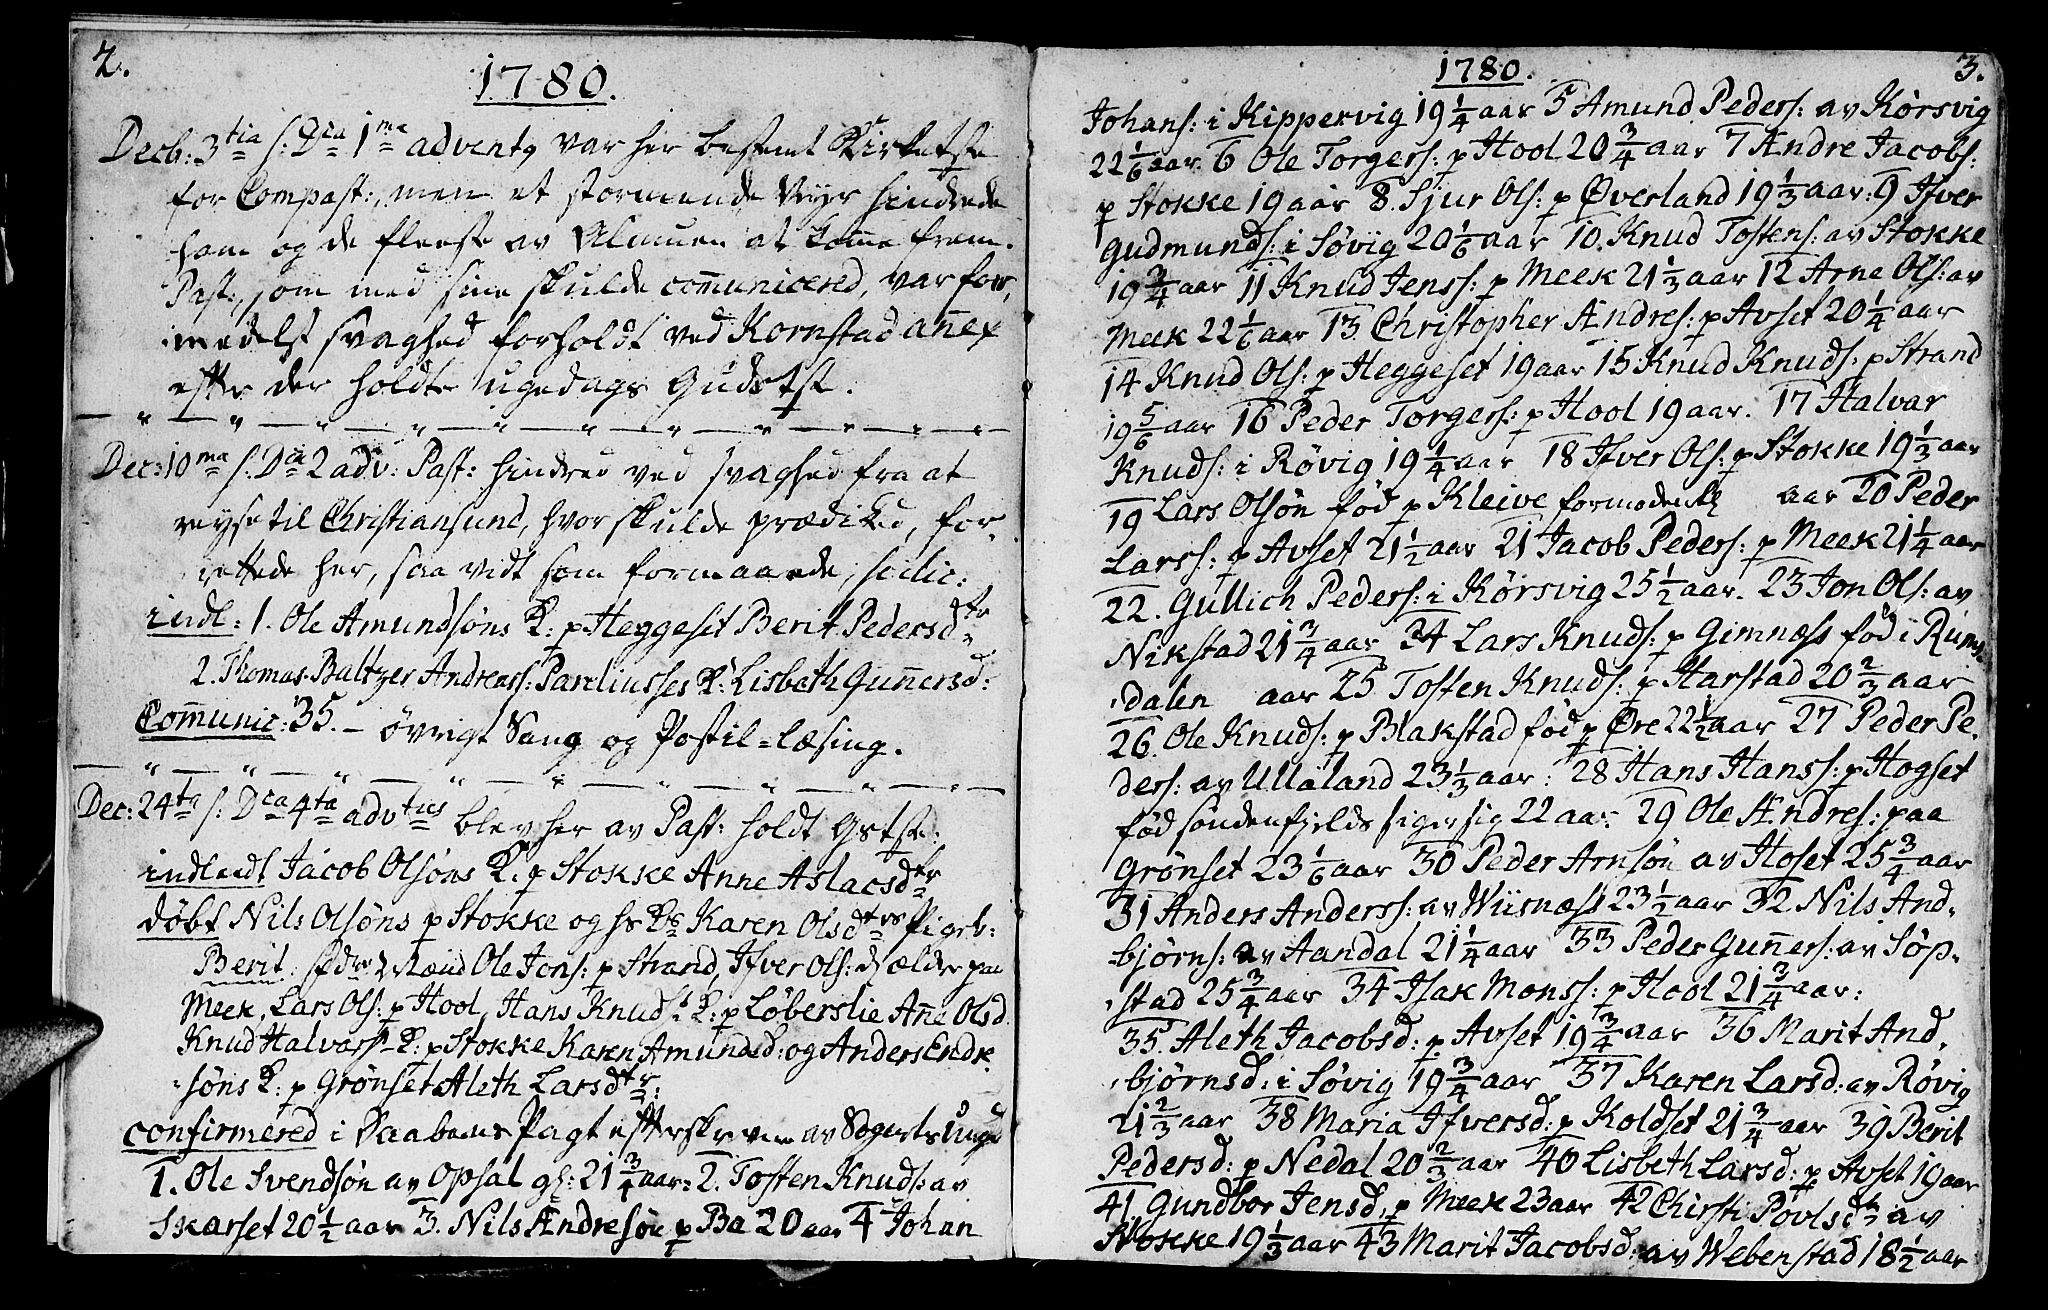 2.
1780.
Decb: 3tia s: Dca 1ma adventq var her bestemt Kirketste
for Compast:, men et stormende Veyr hindrede
ham og de fleeste av Almuen at komme frem.
Past:, som med sine skulde comunicered, var for,
imedelst svaghed forholdt ved Kornstad annex
efter der holdte ugedags Gudstst.
Dec: 10ma s. Dca 2 adv: Past: hindred ved svaghed fra at
reyse til Christiansund, hvor skulde prædiked, for,
rettede her, saa vidt som formaaede, scilic:
indl: 1. Ole Amundsøns K: p Heggeset Berit Pedersdtr
2. Thomas Baltzer Andreass: Pareliusses K: Lisbeth Gunnersd:
Comunic: 35. – øvrigt Sang og Postil=læsing.
Dec: 24ta s: Dca 4ta advtus blev her av Past: holdt Gstste:
indleedt Jacob Olsøns K. p Stokke Anne Aslacsdtr
døbt Nils Olsøns p Stokke og hs Ks Karen Olsdtrs Pigeb:
Berit. fdre Mænd Ole Jons: p Strand, Ifver Ols: d ældre paa
Meek, Lars Ols: p Hool, Hans Knuds: K: p Løberslie Anne Olsd.
Knud Halvarss K: p Stokke Karen Amundsd: og Anders Endre,
søns K: p Grønset Aleth Larsdtr:
confirmered i Daabens Pagt efterskrevne av Sogerts Unge
1. Ole Svendsøn av Opsal gl: 21 3/4 aar: 2. Tosten Knuds: av
Skarset 20 1/2 aar 3. Nils Andresøn p Ba 20 aar 4 Johan
1780. 3.
Johans: i Kippervig 19 1/4 aar 5 Amund Peders: av Kørsvig
22 1/6 aar 6 Ole Torgers: p Hool 20 3/4 aar 7 Andre Jacobs:
p Stokke 19 aar 8. Sjur Ols: p Øverland 19 1/3 aar: 9 Ifver
Gudmunds: i Søvig 20 1/6 aar 10. Knud Tostens: av Stokke
19 3/4 aar 11 Knud Jenss: p Meek 21 1/3 aar 12 Arne Ols: av
Meek 22 1/6 aar 13. Christopher Andres: p Avset 20 1/4 aar
14 Knud Ols: p Heggeset 19 aar 15 Knud Knuds: p Strand
19 5/6 aar 16 Peder Torgers: p Hool 19 aar. 17 Halvar
Knuds: i Røvig 19 1/4 aar 18 Ifver Ols: p Stokke 19 1/3 aar
19 Lars Olsøn fød p Kleive formodentl aar 20 Peder
Larss: p Avset 21 1/2 aar 21 Jacob Peders: p Meek 21 1/4 aar
22. Gullich Peders: i Kørsvig 25 1/2 aar. 23 Jon Ols: av
Nikstad 21 3/4 aar 24 Lars Knuds: p Gimnæss fød i Rums,
dalen aar 25 Tosten Knuds: p Harstad 20 2/3 aar
26. Ole Knuds: p Blakstad fød p Øre 22 1/2 aar 27 Peder Pe,
ders: av Ullaland 23 1/3 aar: 28 Hans Hanss: p Hogset
fød søndenfjelds siger sig 22 aar: 29 Ole Ændres: paa
Grønset 23 1/6 aar 30 Peder Arnsøn av Hoset 25 3/4 aar
31 Anders Anderss: av Wiisnæss 23 1/2 aar 32 Nils And,
bjørns: av Aandal 21 1/4 aar 33 Peder Gunners: av Søp,
stad 25 3/4 aar 34 Isak Monss: p Hool 21 3/4 aar:
35. Aleth Jacobsd: p Avset 19 3/4 aar 36 Marit And,
bjørnsd: i Søvig 19 3/4 aar 37 Karen Larsd: av Røvig
21 2/3 aar 38 Maria Ifversd: p Koldset 21 3/4 aar 39 Berit
Pedersd: p Nedal 20 2/3 aar 40 Lisbeth Larsd: p Avset 19 aar
41. Gundbor Jensd. p Meek 23 aar 42 Chirsti Povlsdtr av
Stokke 19 1/3 aar 43 Marit Jacobsd: av Webenstad 18 1/2 aar